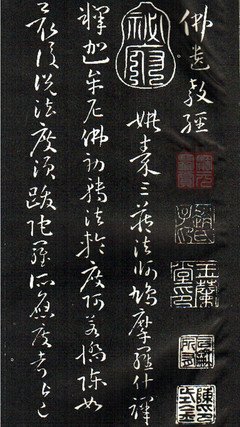 佛遗教經
姚秦三藏法师鳩摩羅什譯
釋迦牟尼佛初轉法輪度阿若憍陳如
最後說法度須跋陀羅所應度者皆已
玉蘭堂印